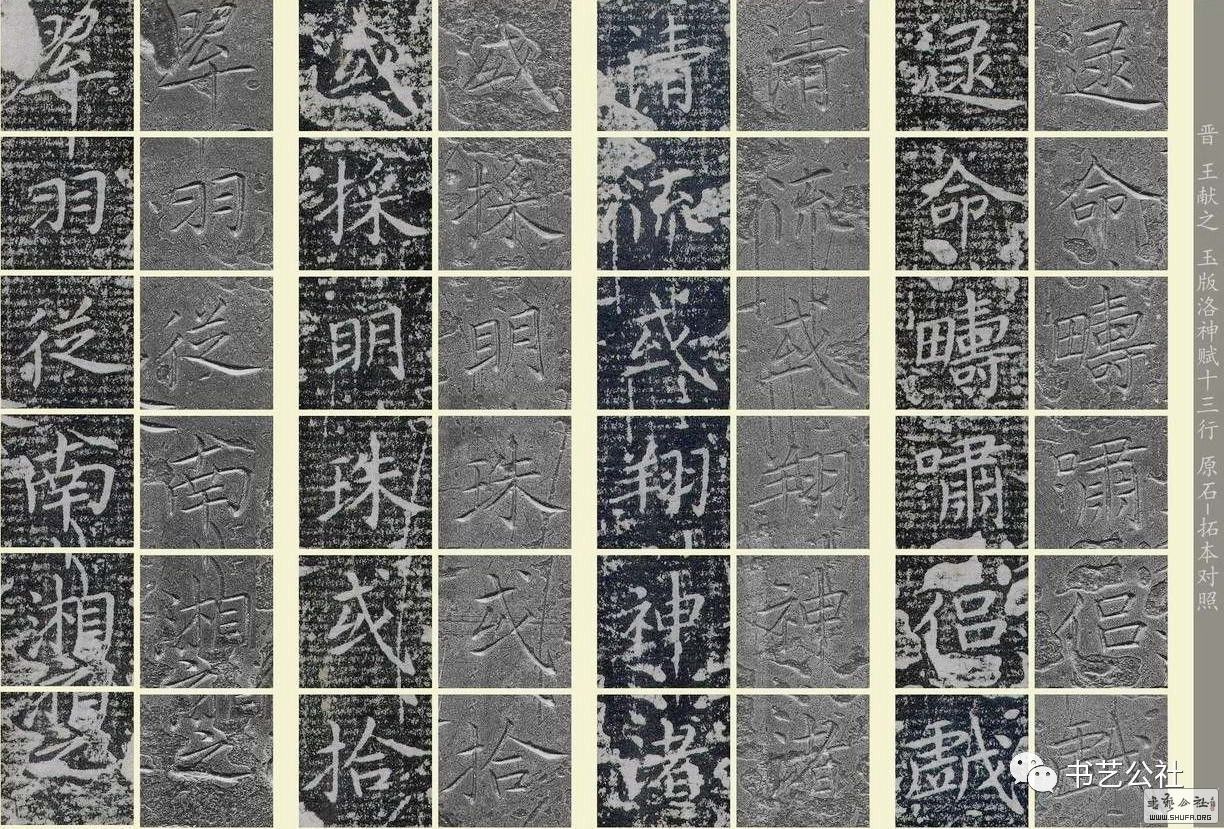 晋 王献之 玉版洛神赋十三行 原石-拓本对照
逯命疇嘯侣戲
逯命疇嘯侣戲
清流或翔神渚
清流或翔神渚
或採明珠或拾
或採明珠或拾
翠羽從南湘之
翠羽從南湘之
书艺公社
WWW.SHUFA.ORG